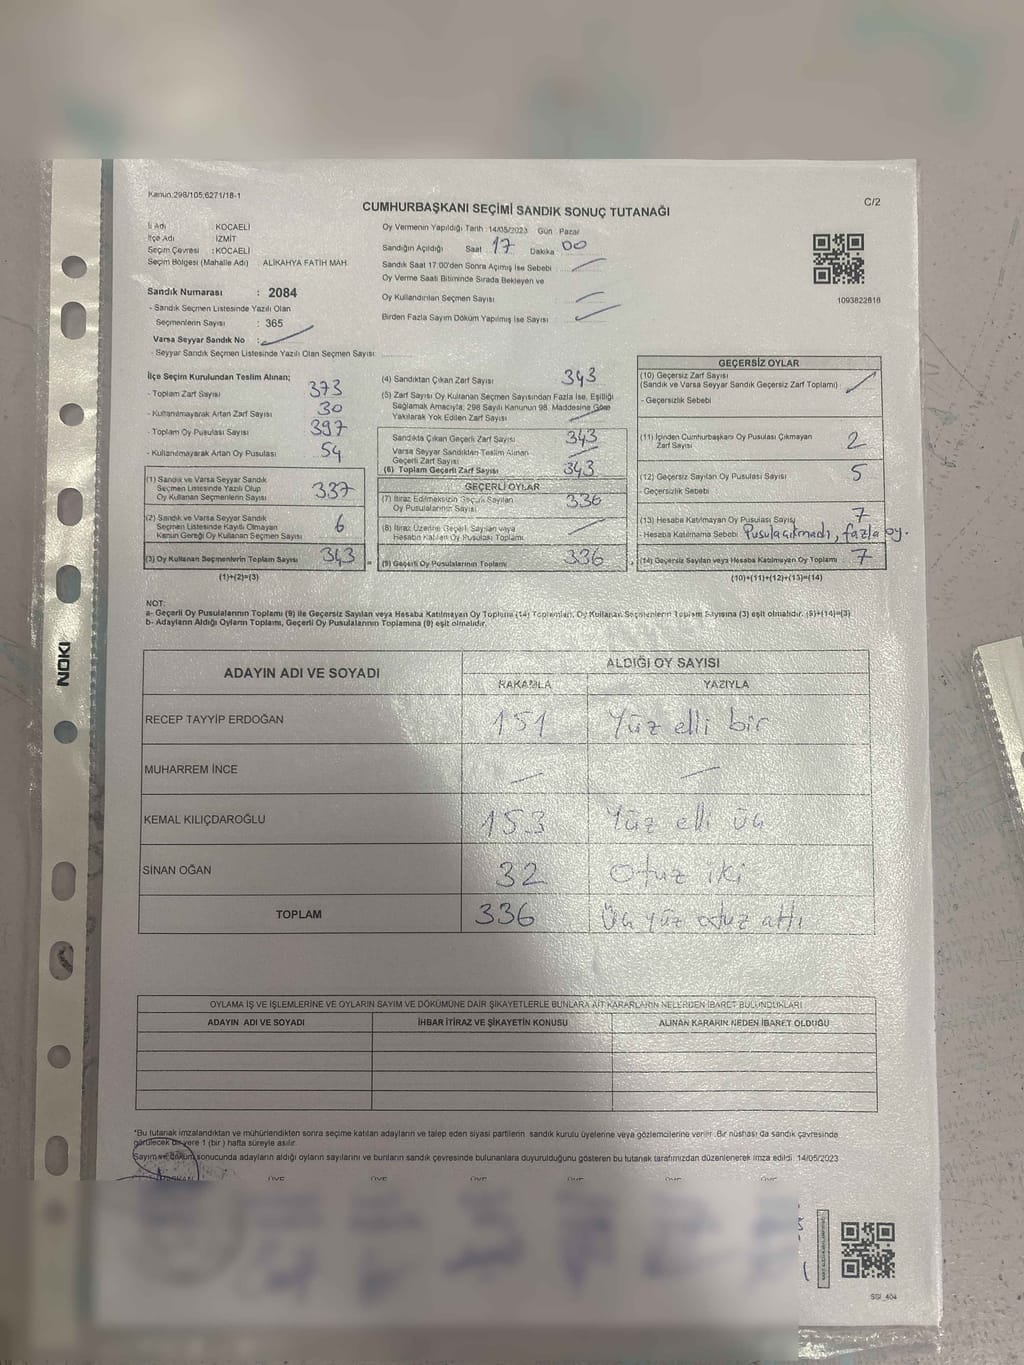 Kanun:298/105;6271/18-1
C/2
CUMHURBAŞKANI SEÇİMİ SANDIK SONUÇ TUTANAĞI
İl Adı : KOCAELİ
İlçe Adı : İZMİT
Seçim Çevresi : KOCAELİ
Seçim Bölgesi (Mahalle Adı) : ALİKAHYA FATİH MAH.
Sandık Numarası : 2084
- Sandık Seçmen Listesinde Yazılı Olan
Seçmenlerin Sayısı : 365
Varsa Seyyar Sandık No :
- Seyyar Sandık Seçmen Listesinde Yazılı Olan Seçmen Sayısı:
Oy Vermenin Yapıldığı Tarih : 14/05/2023 Gün : Pazar
Sandığın Açıldığı Saat 17 Dakika 00
Sandık Saat 17:00'den Sonra Açımış İse Sebebi
Oy Verme Saati Bitiminde Sırada Bekleyen ve
Oy Kullandırılan Seçmen Sayısı
Birden Fazla Sayım Döküm Yapılmış İse Sayısı
1093822616
İlçe Seçim Kurulundan Teslim Alınan;
- Toplam Zarf Sayısı 373
- Kullanılmayarak Artan Zarf Sayısı 30
- Toplam Oy Pusulası Sayısı 397
- Kullanılmayarak Artan Oy Pusulası 54
(1) Sandık ve Varsa Seyyar Sandık
Seçmen Listesinde Yazılı Olup
Oy Kullanan Seçmenlerin Sayısı 337
(2) Sandık ve Varsa Seyyar Sandık
Seçmen Listesinde Kayıtlı Olmayan
Kanun Gereği Oy Kullanan Seçmen Sayısı 6
(3) Oy Kullanan Seçmenlerin Toplam Sayısı 343
(1)+(2)=(3)
(4) Sandıktan Çıkan Zarf Sayısı 343
(5) Zarf Sayısı Oy Kullanan Seçmen Sayısından Fazla İse, Eşitliği
Sağlamak Amacıyla; 298 Sayılı Kanunun 98. Maddesine Göre
Yakılarak Yok Edilen Zarf Sayısı
Sandıkta Çıkan Geçerli Zarf Sayısı 343
Varsa Seyyar Sandıktan Teslim Alınan
Geçerli Zarf Sayısı
(6) Toplam Geçerli Zarf Sayısı 343
GEÇERLİ OYLAR
(7) İtiraz Edilmeksizin Geçerli Sayılan
Oy Pusulalarının Sayısı 336
(8) İtiraz Üzerine Geçerli Sayılan veya
Hesaba Katılan Oy Pusulası Toplamı
(9) Geçerli Oy Pusulalarının Toplamı 336
GEÇERSİZ OYLAR
(10) Geçersiz Zarf Sayısı
(Sandık ve Varsa Seyyar Sandık Geçersiz Zarf Toplamı)
- Geçersizlik Sebebi
(11) İçinden Cumhurbaşkanı Oy Pusulası Çıkmayan
Zarf Sayısı 2
(12) Geçersiz Sayılan Oy Pusulası Sayısı 5
Geçersizlik Sebebi
(13) Hesaba Katılmayan Oy Pusulası Sayısı 7
- Hesaba Katılmama Sebebi Pusula çıkmadı, fazla oy.
(14) Geçersiz Sayılan veya Hesaba Katılmayan Oy Toplamı 7
(10)+(11)+(12)+(13)=(14)
NOT:
a- Geçerli Oy Pusulalarının Toplamı (9) ile Geçersiz Sayılan veya Hesaba Katılmayan Oy Toplamı (14) Toplamları, Oy Kullanan Seçmenlerin Toplam Sayısına (3) eşit olmalıdır. (9)+(14)=(3)
b- Adayların Aldığı Oyların Toplamı, Geçerli Oy Pusulalarının Toplamına (9) eşit olmalıdır.
ADAYIN ADI VE SOYADI ALDIĞI OY SAYISI
RAKAMLA YAZIYLA
RECEP TAYYİP ERDOĞAN 151 Yüz elli bir
MUHARREM İNCE
KEMAL KILIÇDAROĞLU 153 Yüz elli üç
SİNAN OĞAN 32 Otuz iki
TOPLAM 336 Üç yüz otuz altı
OYLAMA İŞ VE İŞLEMLERİNE VE OYLARIN SAYIM VE DÖKÜMÜNE DAİR ŞİKAYETLERLE BUNLARA AİT KARARLARIN NELERDEN İBARET BULUNDUKLARI
ADAYIN ADI VE SOYADI İHBAR İTİRAZ VE ŞİKAYETİN KONUSU ALINAN KARARIN NEDEN İBARET OLDUĞU
*Bu tutanak imzalandıktan ve mühürlendikten sonra seçime katılan adayların ve talep eden siyasi partilerin sandık kurulu üyelerine veya gözlemcilerine verilir. Bir nüshası da sandık çevresinde
görülecek bir yere 1 (bir) hafta süreyle asılır.
Sayım ve döküm sonucunda adayların aldığı oyların sayılarını ve bunların sandık çevresinde bulunanlara duyurulduğunu gösteren bu tutanak tarafımızdan düzenlenerek imza edildi. 14/05/2023
BAŞKAN ÜYE ÜYE ÜYE ÜYE ÜYE ÜYE
SGI_404
NOKI